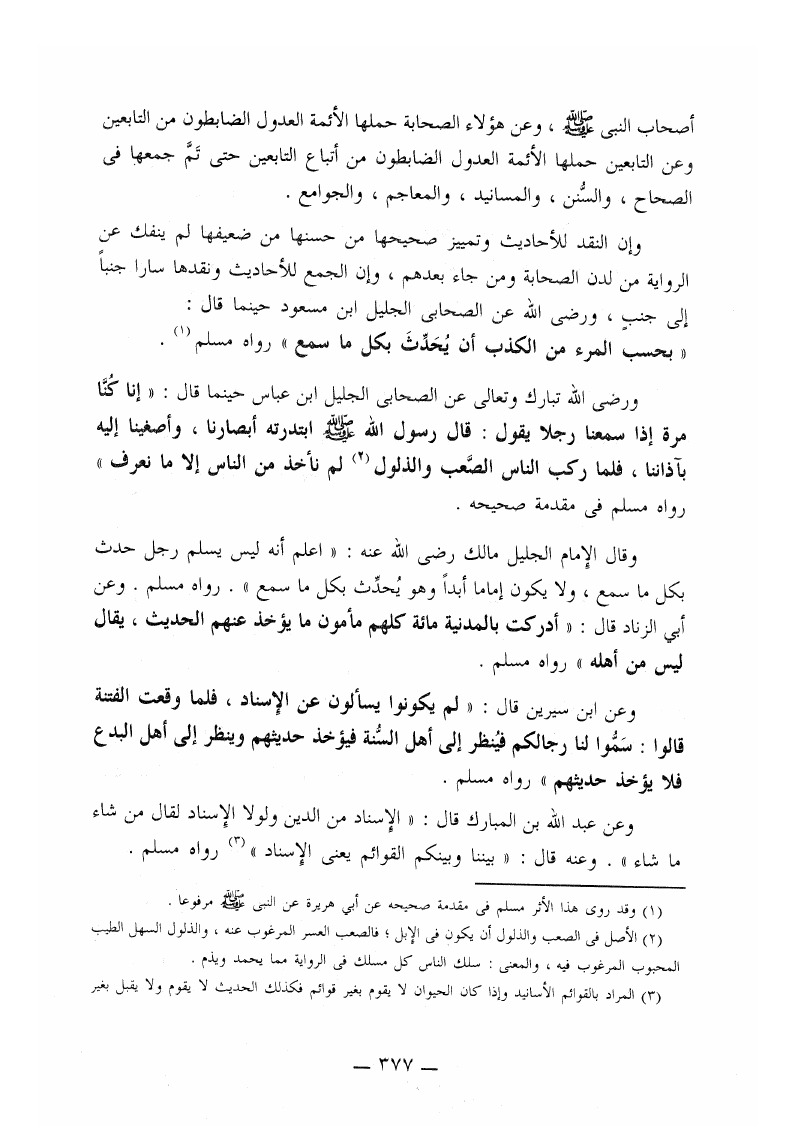 أصحاب النبى ﷺ ، وعن هؤلاء الصحابة حملها الأئمة العدول الضابطون من التابعين
وعن التابعين حملها الأئمة العدول الضابطون من أتباع التابعين حتى تَمَّ جمعها فى
الصحاح ، والسُّنن ، والمسانيد ، والمعاجم ، والجوامع .
وإن النقد للأحاديث وتمييز صحيحها من حسنها من ضعيفها لم ينفك عن
الرواية من لدن الصحابة ومن جاء بعدهم ، وإن الجمع للأحاديث ونقدها سارا جنباً
إلى جنبٍ ، ورضى الله عن الصحابى الجليل ابن مسعود حينما قال :
« بحسب المرء من الكذب أن يُحَدِّثَ بكل ما سمع » رواه مسلم(١) .
ورضى الله تبارك وتعالى عن الصحابى الجليل ابن عباس حينما قال : « إنا كُنَّا
مرة إذا سمعنا رجلا يقول : قال رسول الله ﷺ ابتدرته أبصارنا ، وأصغينا إليه
بآذاننا ، فلما ركب الناس الصَّعب والذلول(٢) لم نأخذ من الناس إلا ما نعرف »
رواه مسلم فى مقدمة صحيحه .
وقال الإمام الجليل مالك رضى الله عنه : « اعلم أنه ليس يسلم رجل حدث
بكل ما سمع ، ولا يكون إماما أبداً وهو يُحدِّث بكل ما سمع » . رواه مسلم . وعن
أبي الزناد قال : « أدركت بالمدنية مائة كلهم مأمون ما يؤخذ عنهم الحديث ، يقال
ليس من أهله » رواه مسلم .
وعن ابن سيرين قال : « لم يكونوا يسألون عن الإسناد ، فلما وقعت الفتنة
قالوا : سَمُّوا لنا رجالكم فيُنظر إلى أهل السُّنة فيؤخذ حديثهم وينظر إلى أهل البدع
فلا يؤخذ حديثهم » رواه مسلم .
وعن عبد الله بن المبارك قال : « الإسناد من الدين ولولا الإسناد لقال من شاء
ما شاء » . وعنه قال : « بيننا وبينكم القوائم يعنى الإسناد »(٣) رواه مسلم .
(١) وقد روى هذا الأثر مسلم فى مقدمة صحيحه عن أبي هريرة عن النبى ﷺ مرفوعا .
(٢) الأصل فى الصعب والذلول أن يكون فى الإبل ؛ فالصعب العسر المرغوب عنه ، والذلول السهل الطيب
المحبوب المرغوب فيه ، والمعنى : سلك الناس كل مسلك فى الرواية مما يحمد ويذم .
(٣) المراد بالقوائم الأسانيد وإذا كان الحيوان لا يقوم بغير قوائم فكذلك الحديث لا يقوم ولا يقبل بغير
— ٣٧٧ —